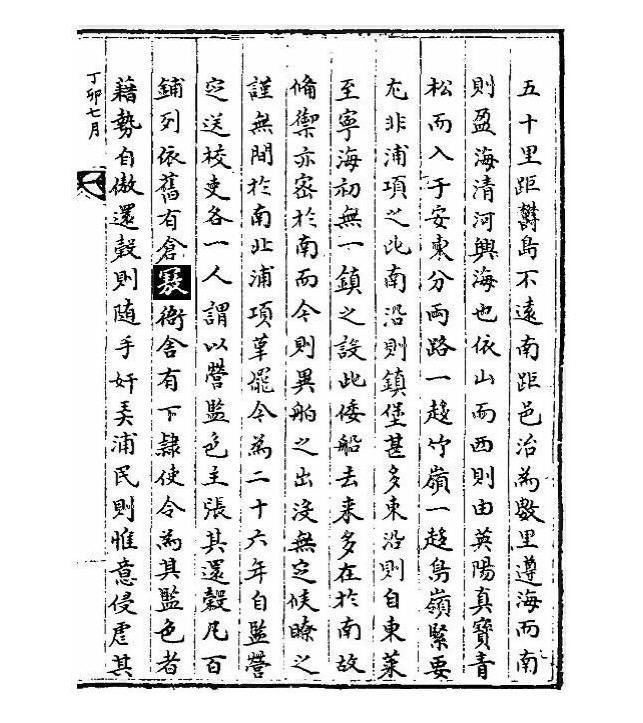 五十里距鬱島不遠南距邑治為數里遵海而南
則盈海清河興海也依山而西則由英陽真寶青
松而入于安東分兩路一趍竹嶺一趍鳥嶺緊要
尤非浦項之比南沿則鎮堡甚多東沿則自東萊
至寧海初無一鎮之設此倭船去来多在於南故
備禦亦密於南而今則異舶之出沒無定候瞭之
謹無間於南北浦項革罷今為二十六年自監營
定送校吏各一人謂以營監色主張其還穀凡百
鋪列依舊有倉廒衙舍有下隷使令為其監色者
藉勢自傲還穀則随手奸弄浦民則惟意侵虐其
丁卯七月